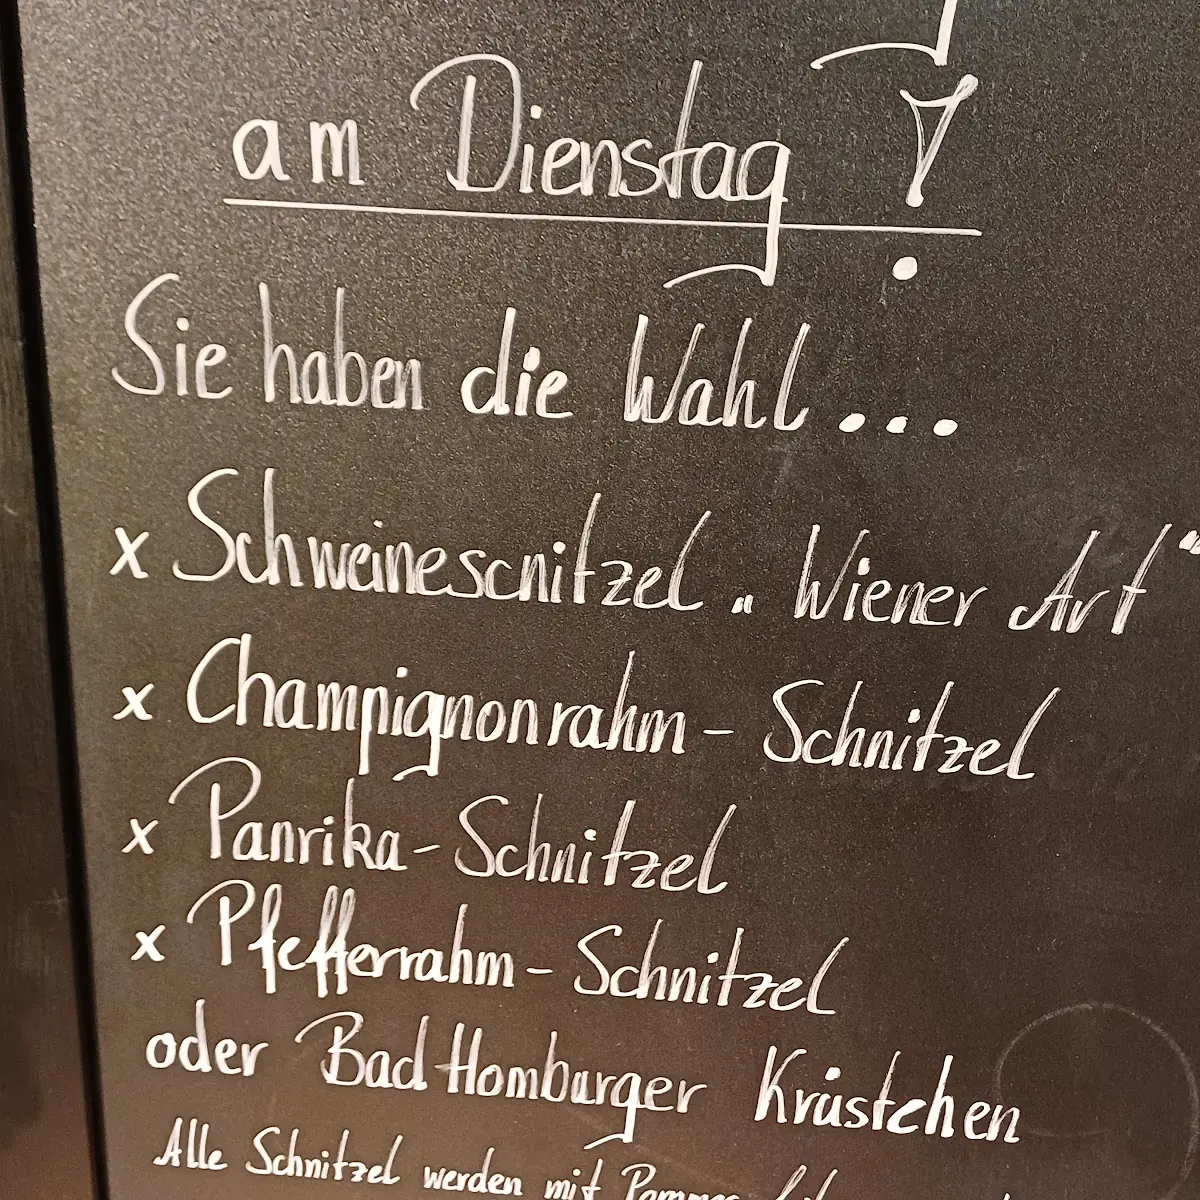 am Dienstag!
Sie haben die Wahl...
x Schweinescnitzel „Wiener Art"
x Champignonrahm - Schnitzel
x Panrika - Schnitzel
x Pfefferrahm - Schnitzel
oder Bad Homburger Krüstchen
Alle Schnitzel werden mit